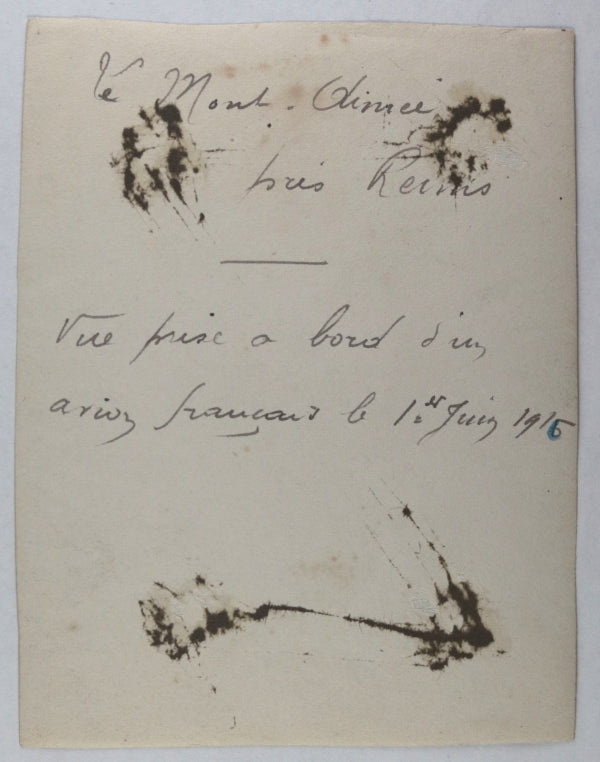 Le Mont-Aimée
près Reims
Vue prise a bord d'un
avion français le 1er Juin 1916